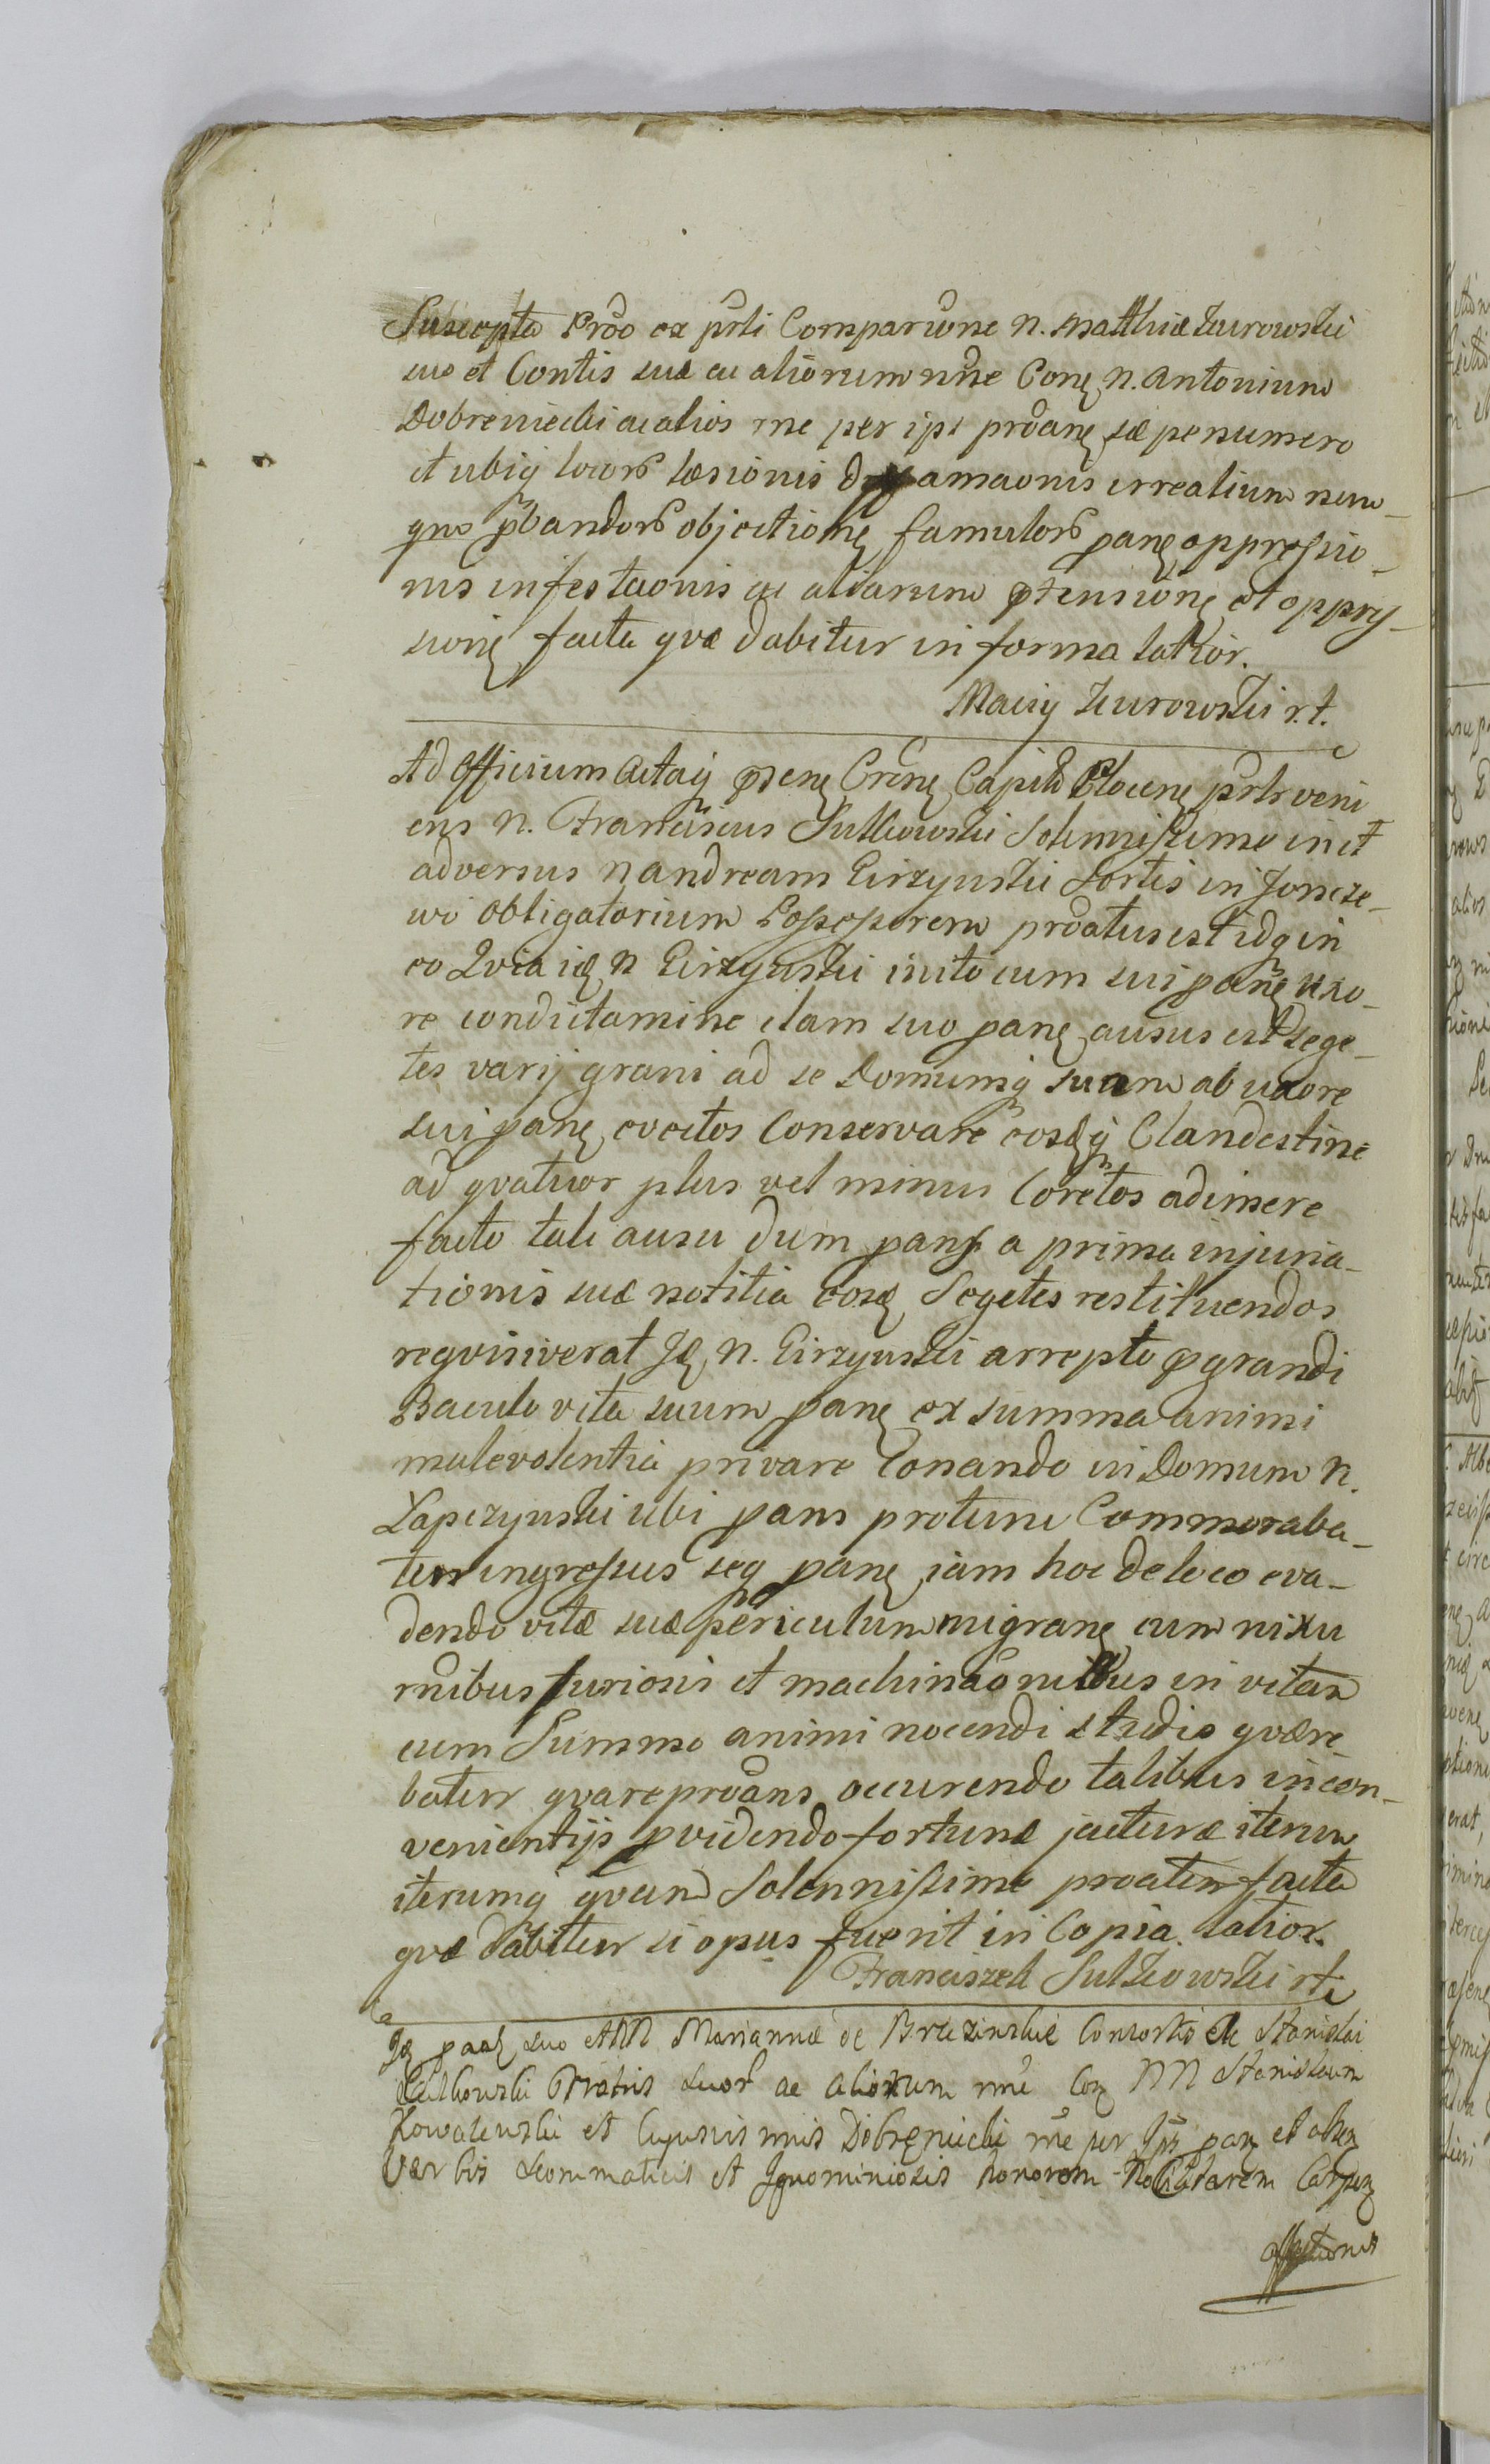 Suscepta Prõo ex prsti Comparitione N. Matthiæ Zurowski
suo et Contis suæ ac aliorum nñe Conę N. Antonium
Dobreniecki ac alios rne per ips prõanę sæpenumero
et ubiq locorũ læsionis Diffamaõnis irrealium nun-
quo pbandorũ objectionę famulorũ panę oppressio-
nis infestaõnis ac aliarum ptensionę et oppres-
sionę facta quæ dabitur in forma latior.
Maciy Zurowski r.t.
Ad Officium Actaq psenę Crensę Capitũ Plocenę prstr veni
ens N. Franciscus Sutkowski Solennissime in et
adversus N Andream Cirzynski Sortis in Joncze-
wo Obligatorium Possessorem prõatus est idq in
eo Qvia idę N Cirzynski inito cum sui panę uxo-
re condictamine clam suo panę ausus est sege-
tes varij grani ad se Domumq suam ab uxore
sui panę evectos Conservare eosdq Clandestine
ad qvatuor plus vel minus Coretos adimere
facto tali ausu dum pans a prima injuria-
tionis suæ notitia eosdę Segetes restituendos
reqvisiverat Idę N. Cirzynski arrepto pgrandi
Baculo vita suum panę ex summa animi
malevolentia privare Conando in Domum N.
Lapczynski ubi pans protunc Commoraba-
tur ingressus seq panę iam hoc de loco eva-
dendo vitæ suæ periculum migranę cum nixu
rñibus furiosis et machinaõnibus in vitam
cum Summo animi nocendi studio qvære-
batur qvare prõans occurendo talibus incon-
venientijs pvidendo fortunæ jacturæ iterum
iterumq qvam Solennissime proatur facta
qvæ dabitur si opus fuerit in Copia latior.
Franciszek Sutkowski rt
Idę paaę suo et NN Mariannæ de Brzezinskie Consortis et Stanislai
Sutkowski Fratris suorũ ac aliorum nñe Conę NN Stanislaum
Kowalewski et Cujusvis nnis Dobręniecki rñe per Ips panę et absenę
Verbis Scommaticis et Ignominiosis honorem Nobilitarem Carpenę